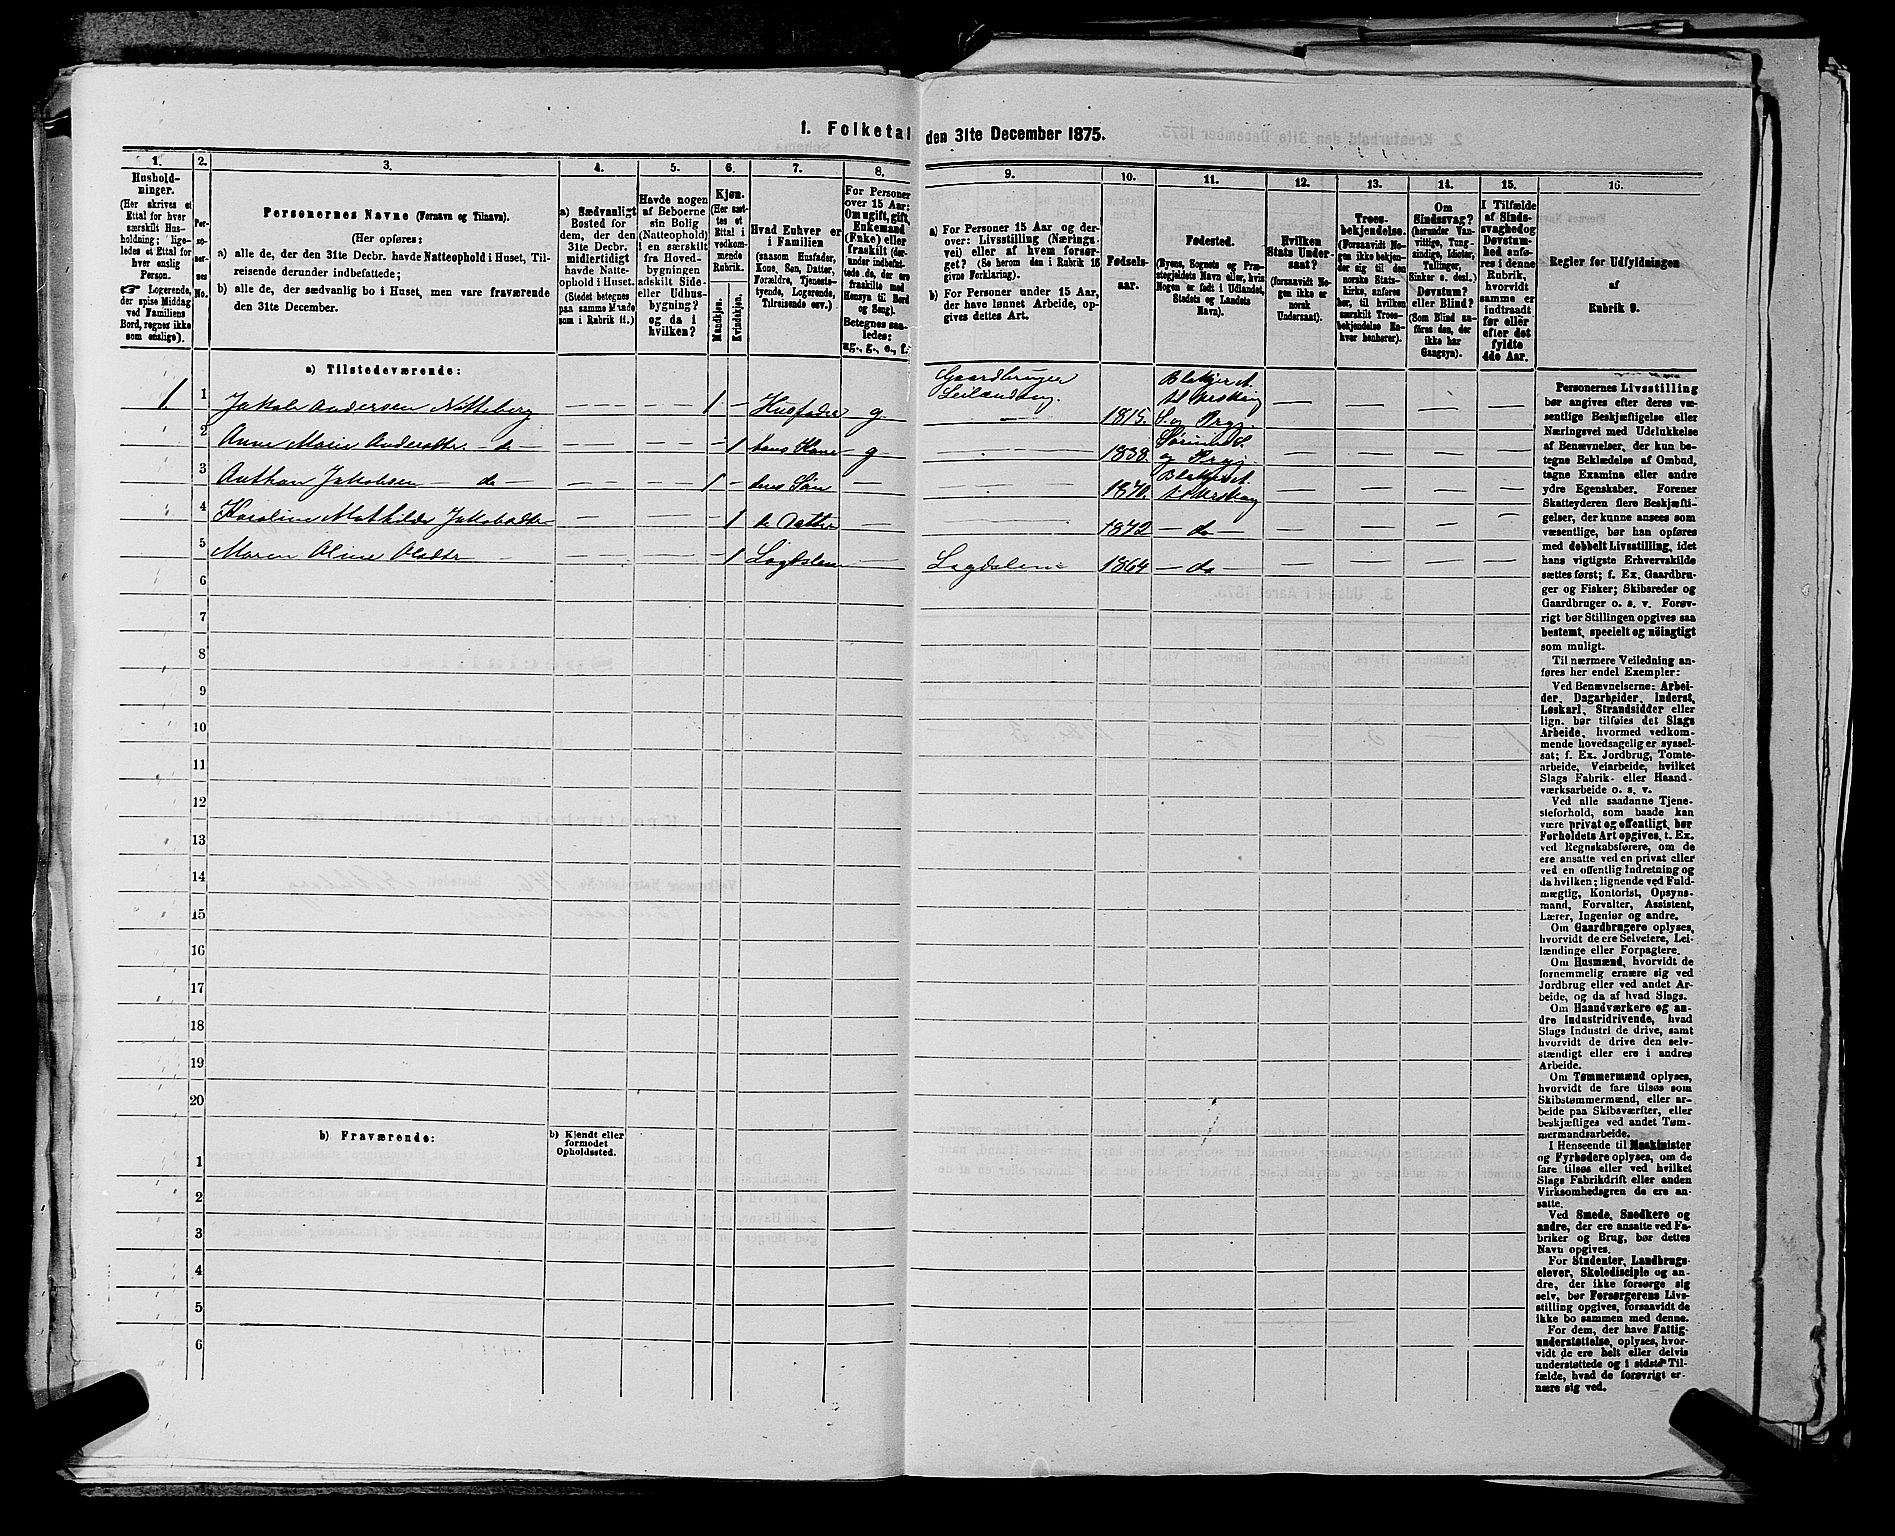 1. Folketal den 31te December 1875.
1.
Hushold-
ninger.
(Her skrives et
Ettal for hver
særskilt Hus-
holdning; lige-
ledes et Ettal for
hver enslig
Person.
Logerende,
der spise Middag
ved Familiens
Bord, regnes ikke
som enslige).
2.
Per-
so-
ner-
nes
No.
3.
Personernes Navne (Fornavn og Tilnavn).
(Her opføres:
a) alle de, der den 31te Decbr. havde Natteophold i Huset, Til-
reisende derunder indbefattede;
b) alle de, der sædvanlig bo i Huset, men vare fraværende
den 31te December.
4.
a) Sædvanligt
Bosted for
dem, der den
31te Decbr.
midlertidigt
havde Natte-
ophold i Huset.
(Stedet betegnes
paa samme Maade
som i Rubrik 11.)
5.
Havde nogen
af Beboerne
sin Bolig
(Natteophold)
i en særskilt
fra Hoved-
bygningen
adskilt Side-
eller Udhus-
bygning?
og da i
hvilken?
6.
Kjøn.
(Her sæt-
tes et
Ettal i
vedkom-
mende
Rubrik.
Mandkjøn.
Kvindekjøn.
7.
Hvad Enhver er
i Familien
(saasom Husfader,
Kone, Søn, Datter,
Forældre, Tjeneste-
tyende, Logerende,
Tilreisende osv.)
8.
For Personer
over 15 Aar:
Om ugift, gift,
Enkemand
(Enke) eller
fraskilt (der-
under indbefat-
tede de, der ere
fraskilte med
Hensyn til Bord
og Seng).
Betegnes saa-
ledes:
ug., g., e., f.
9.
a) For Personer 15 Aar og der-
over: Livsstilling (Nærings-
vei) eller af hvem forsør-
get? (Se herom den i Rubrik 16
givne Forklaring).
b) For Personer under 15 Aar,
der have lønnet Arbeide, op-
gives dettes Art.
10.
Fødsels-
aar.
11.
Fødested.
(Byens, Sognets og Præ-
stegjeldets Navn eller, hvis
Nogen er født i Udlandet,
Stedets og Landets
Navn).
12.
Hvilken
Stats Under-
saat?
(forsaavidt No-
gen ikke er
norsk
Undersaat).
13.
Troes-
bekjendelse.
(Forsaavidt No-
gen ikke bekjen-
der sig til den
norske Stats-
kirke, anføres
her, til hvilken
særskilt Troes-
bekjendelse En-
hver henhører).
14.
Om
Sindssvag?
(herunder Van-
vittige, Tung-
sindige, Idioter,
Tullinger,
Sinker o. desl.)
Døvstum?
eller Blind?
(Som Blind an-
føres den, der
ikke har
Gangsyn).
15.
I Tilfælde
af Sinds-
svaghed og
Døvstum-
hed anfø-
res i denne
Rubrik,
hvorvidt
samme er
indtraadt
før eller
efter det
fyldte
4de Aar.
16.
Regler for Udfyldningen
af
Rubrik 9.
a) Tilstedeværende:
1. 1 Jakob Andersen Netteberg — — 1 — Husfader g Gaardbruger Leilænding. 1815. Blakjer A. til Urskog S. og Prgj. — — — —
2 Anne Marie Andersdtr. — do — — — 1 hans Kone g — 1838. Sørum S. og Prgj. — — — —
3 Anthon Jakobsen — do — — — 1 — deres Søn — — 1870. Blakjer A. t. Urskog — — — —
4 Karoline Mathilde Jakobsdtr — — — 1 do Datter — — 1872 — do — — — — —
5 Maren Oline Olsdtr — — — — 1 Lægdslem — Lægdslem 1864 — do — — — — —
6
7
8
9
10
11
12
13
14
15
16
17
18
19
20
b) Fraværende:
b) Kjendt eller
formodet
Opholdssted.
1
2
3
4
5
6
Personernes Livsstilling
bør angives efter deres væ-
sentlige Beskjæftigelse eller
Næringsvei med Udelukkelse
af Benævnelser, der kun be-
tegne Beklædelse af Ombud,
tagne Examina eller andre
ydre Egenskaber. Forener
Skatteyderen flere Beskjæfti-
gelser, der kunne ansees som
væsentlige, bør han opføres
med dobbelt Livsstilling, idet
hans vigtigste Erhvervskilde
sættes først; f. Ex. Gaardbru-
ger og Fisker; Skibsreder og
Gaardbruger o. s. v. Forøv-
rigt bør Stillingen opgives saa
bestemt, specielt og nöiagtigt
som muligt.
Til nærmere Veiledning an-
føres her endel Exempler:
Ved Benævnelserne: Arbei-
der, Dagarbeider, Inderst,
Løskarl, Strandsidder eller
lign. bør tilføies det Slags
Arbeide, hvormed vedkom-
mende hovedsagelig er syssel-
sat; f. Ex. Jordbrug, Tomte-
arbeide, Veiarbeide, hvilket
Slags Fabrik- eller Haand-
værksarbeide o. s. v.
Ved alle saadanne Tjene-
steforhold, som baade kan
være privat og offentligt, bør
Forholdets Art opgives, t. Ex.
ved Regnskabsførere, om de
ere ansatte ved en privat eller
ved en offentlig Indretning og
da hvilken; lignende ved Fuld-
mægtig, Kontorist, Opsyns-
mand, Forvalter, Assistent,
Lærer, Ingeniør og andre.
Om Gaardbrugere oplyses,
hvorvidt de ere Selveiere, Lei-
lændinge eller Forpagtere.
Om Husmænd, hvorvidt de
fornemmelig ernære sig ved
Jordbrug eller ved andet Ar-
beide, og da af hvad Slags.
Om Haandværkere og an-
dre Industridrivende, hvad
Slags Industri de drive, samt
hvorvidt de drive den selv-
stændigt eller ere i andres
Arbeide.
Om Tømmermænd oplyses,
hvorvidt de fare tilsøs som
Skibstømmermænd, eller ar-
beide paa Skibsværfter, eller
beskjæftiges ved andet Tøm-
mermandsarbeide.
I Henseende til Maskinister
og Fyrbødere oplyses, om de
fare tilsøs eller ved hvilket
Slags Fabrikdrift eller anden
Virksomhedsgren de ere an-
satte.
Ved Smede, Snedkere og
andre, der ere ansatte ved Fa-
briker og Brug, bør dettes
Navn opgives.
For Studenter, Landbrugs-
elever, Skoledisciple og an-
dre, der ikke forsørge sig
selv, bør Forsørgerens Livs-
stilling opgives, forsaavidt de
ikke bo sammen med denne.
For dem, der have Fattig-
understøttelse, oplyses, hvor-
vidt de ere helt eller delvis
understøttede og i sidste Til-
fælde, hvad de forøvrigt er-
nære sig ved.